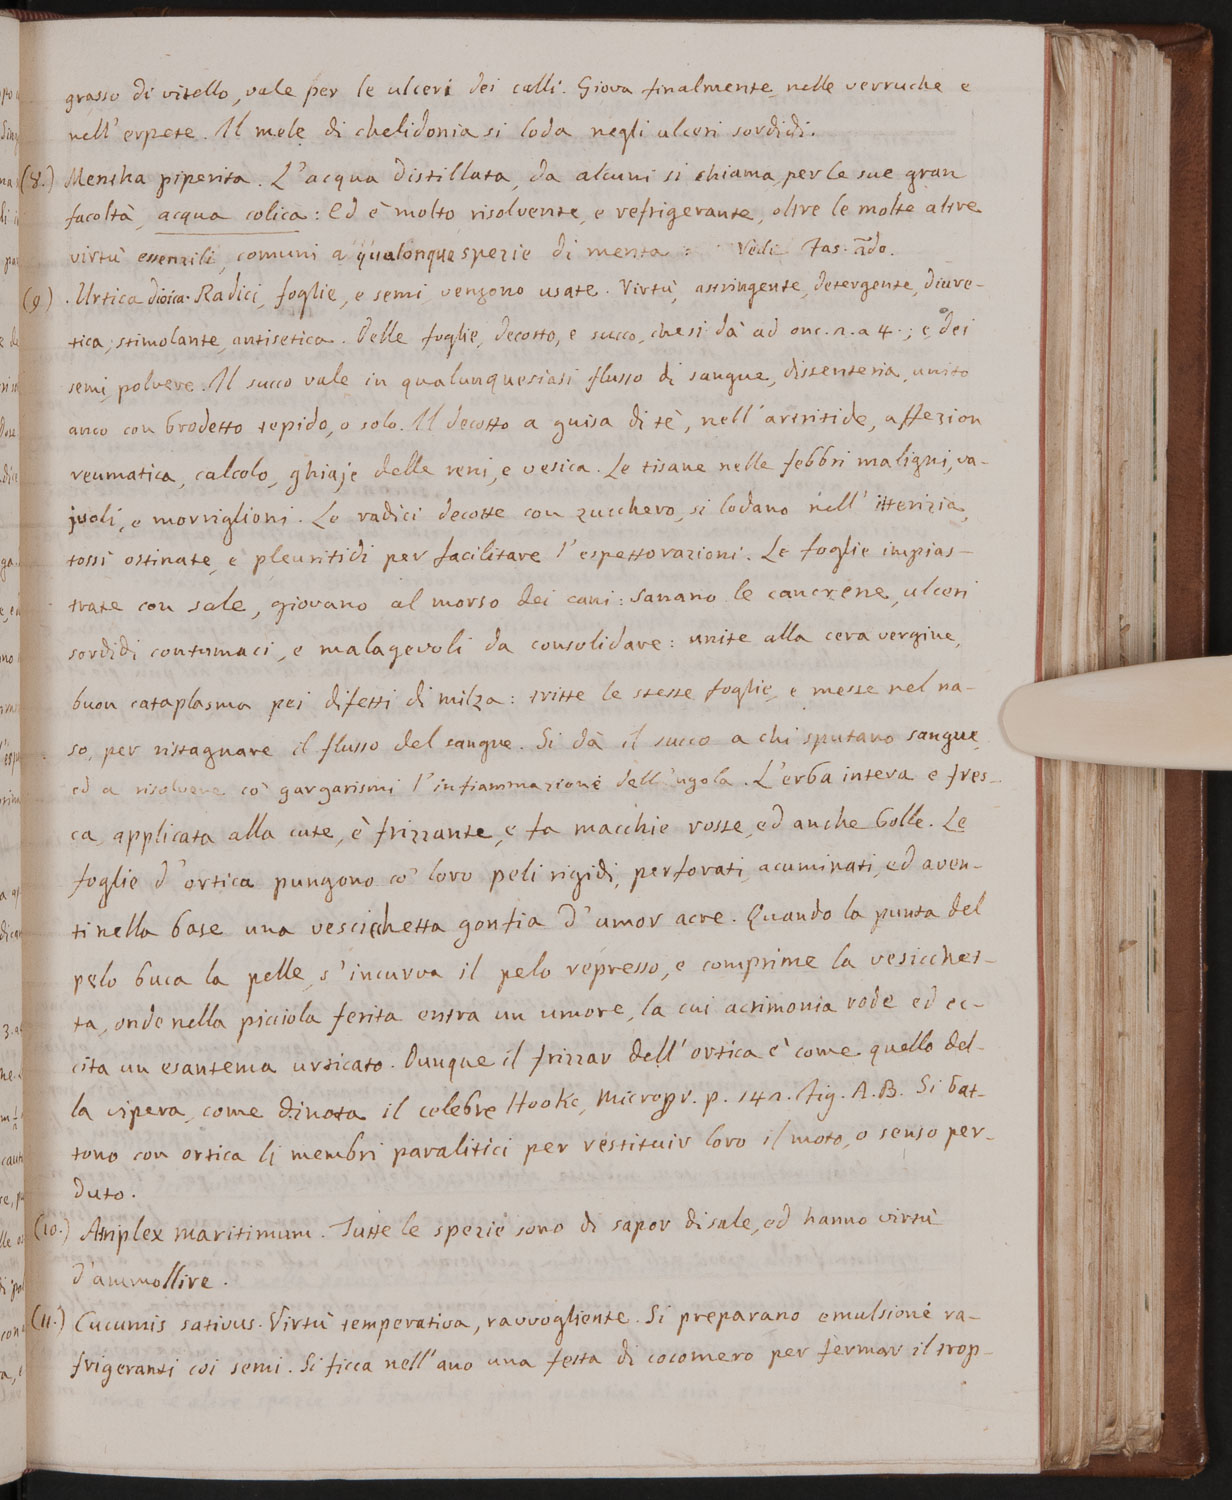 grasso di vitello, vale per le ulceri dei calli. Giova finalmente nelle verruche e
nell'erpete. Il mele di chelidonia si loda negli ulceri sordidi.
(8.) Mentha piperita. L'acqua distillata, da alcuni si chiama, per le sue gran
facoltà, acqua colica: ed è molto risolvente, e refrigerante, oltre le molte altre
virtù essenzili, comuni a qualonque spezie di menta: Vedi Fas. ado.
(9) . Urtica dioica. Radici, foglie, e semi vengono usate. Virtù, astringente, detergente, diure-
tica, stimolante, antisetica. Delle foglie, decotto, e succo, che si dà ad onc. 2. a 4.; e dei
semi, polvere. Il succo vale in qualunquesiasi flusso di sangue, dissenteria, unito
anco con brodetto tepido, o solo. Il decotto a guisa di tè, nell'artritide, affezion
reumatica, calcolo, ghiaje delle reni, e vesica. Le tisane nelle febbri maligni, va-
juoli, e morviglioni. Le radici decotte con zucchero, si lodano nell' itterizia,
tossi ostinate, e pleuritidi per facilitare l'espettorazioni. Le foglie impias-
trate con sale, giovano al morso dei cani: sanano le cancrene, ulceri
sordidi contumaci, e malagevoli da consolidare: unite alla cera vergine,
buon cataplasma pei difetti di milza: tritte le stesse foglie, e messe nel na-
so, per ristagnare il flusso del sangue. Si dà il succo a chi sputano sangue,
ed a risolvere co' gargarismi l'infiammazione dell'ugola. L'erba intera e fres-
ca, applicata alla cute, è frizzante, e fa macchie rosse, ed anche bolle. Le
foglie d'ortica pungono co' loro peli rigidi, perforati, acuminati, ed aven-
ti nella base una vescichetta gonfia d'umor acre. Quando la punta del
pelo buca la pelle, s'incurva il pelo represso, e comprime la vesicchet-
ta, onde nella picciola ferita entra un umore, la cui acrimonia rode ed ec-
cita un esantema urticato. Dunque il frizzar dell'ortica è come quello del-
la vipera, come dinota il celebre Hooke, Microgr. p. 142. fig. A. B. Si bat-
tono con ortica li membri paralitici per restituir loro il moto, o senso per-
duto.
(10.) Atriplex maritimum. Tutte le spezie sono di sapor di sale, ed hanno virtù
d'ammollire.
(11.) Cucumis sativus. Virtù temperativa, ravvogliente. Si preparano emulsione ra-
frigeranti coi semi. Si ficca nell'ano una fetta di cocomero per fermar il trop-